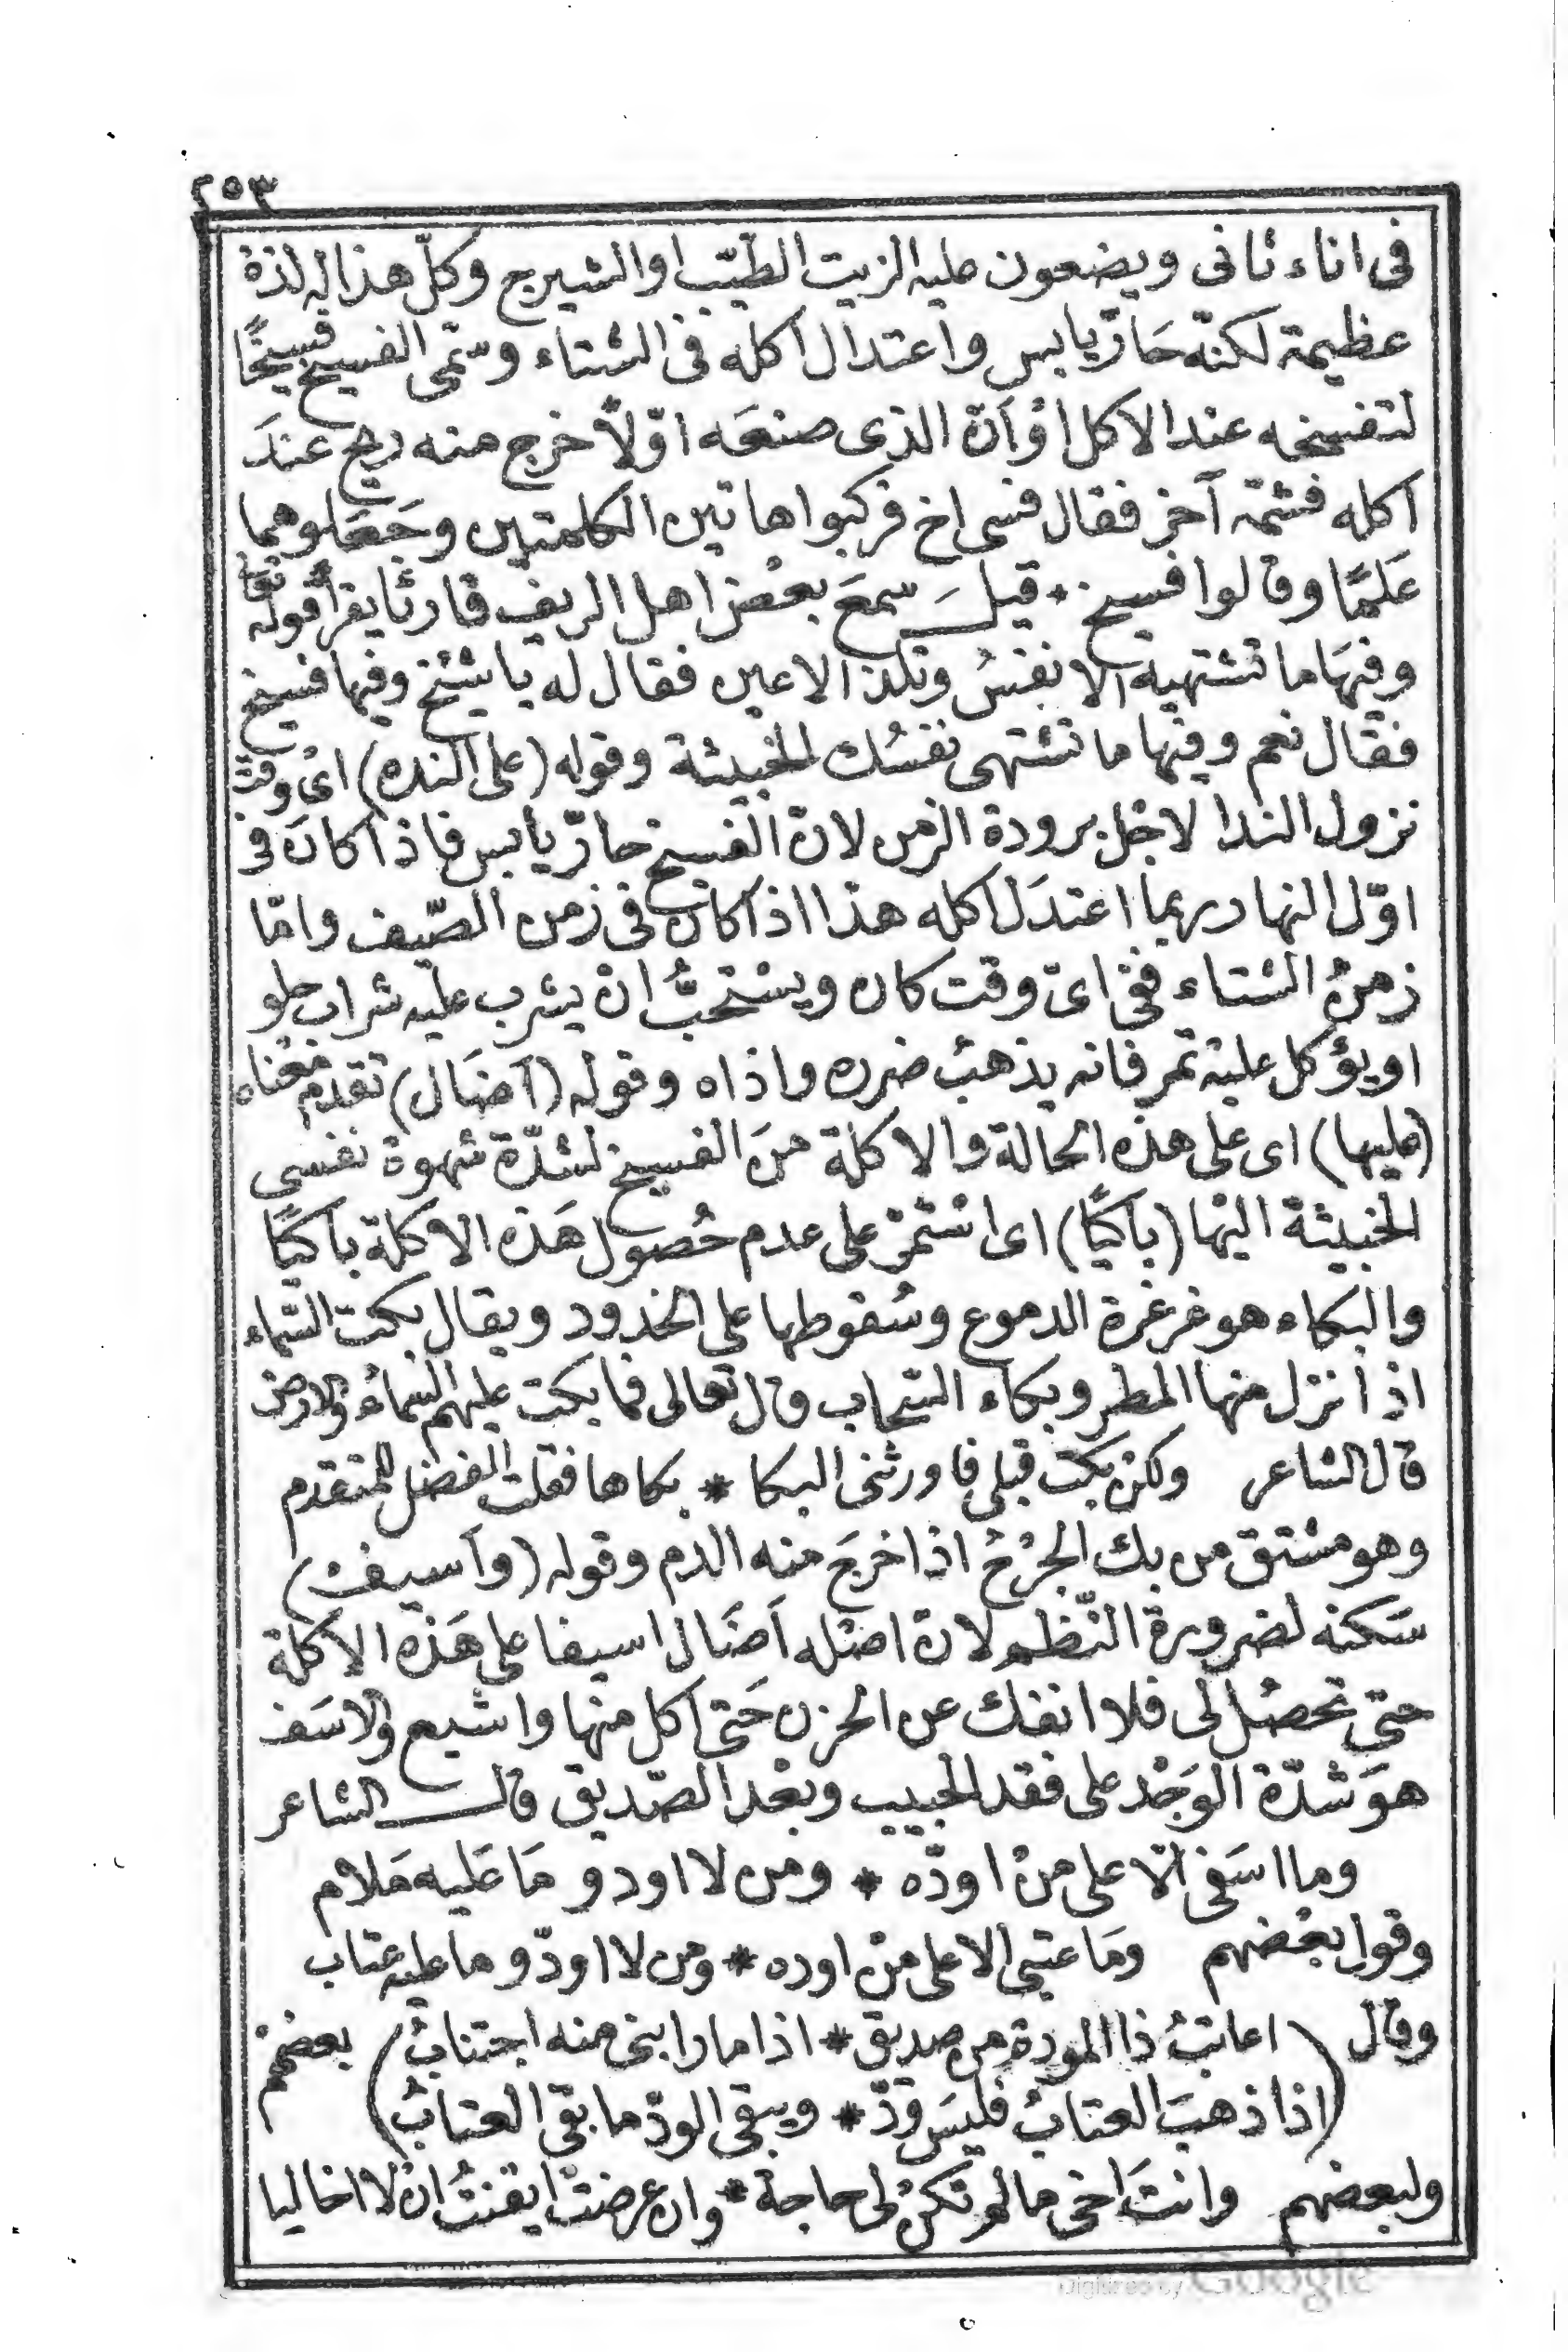 ٢٥٣
فى اناء ثانى ويضعون عليه الزيت الطيّب او الشيرج وكلّ هذا له لذة
عظيمة لكنّه حَارّ يابس واعتدال اكله فى الشتاء وسمّى الفسيخ فسيخًا
لتفسخه عند الاكل اوْ اَنّ الذى صنعَه اوّلاً خرج منه ريح عندَ
اكله فشمّه آخر فقال فسى اخ فركبوا هاتين الكلمتين وجَعَلوهما
عَلَمًا وقالوا فسيخ * قيلَ سمعَ بعْض اهل الريف قارئًا يقرأ قولَه تعالى
وفيهَا ما تشتهيه الانفسُ وتلذ الاعين فقال له يا شيْخ وفيها فسيخ
فقال نعم وفيها ما تشتهى نفسُك الخبيثة وقوله (على النده) اىْ وقتَ
نزول الندا لاجْل برودة الزمن لانّ الفسيخ حارّ يابس فاذا كانَ فى
اوّل النهار ربما اعتدَل اكله هذا اذا كان فى زمن الصّيف وامّا
زمنُ الشتاء ففى اىّ وقت كان ويسْتحبُّ انْ يشرب عليْه شراب حلو
او يؤكل عليْه تمر فانه يذهبُ ضرره واذاه وقوله (اَضَال) تقدم معْناه
(عليها) اى على هذه الحالة والاكلة منَ الفسيخ لشدّة شهوة نفسى
الخبيثة اليْها (باكيًا) اى اسْتمرْ على عدم حُصول هَذه الاكلة باكيًا
والبكاء هو غرغرة الدموع وسُقوطها على الخدود ويقال بكت السّماء
اذا نزل منها المطر وبكاء السّحاب قال تعالى فما بكت عليهم السّماءُ والارض
قال الشاعر ولكنْ بكت قبلى فاورثنى البكا * بكاها فقلت الفضل للمتقدم
وهو مشتق من بك الجرْحُ اذا خرجَ منه الدم وقوله (وآسيفْ)
سَكنه لضرورة النّظم لانّ اصْله اَضَال اسيفا على هَذه الاكلة
حتى تحصُل لى فلا انفك عن الحزن حَتى آكل منها واشبع والاسَف
هوَ شدّة الوَجْد على فقد الحبيب وبعْد الصّديق قال الشاعر
وما اسَفى الّا على منْ اودّه * ومن لا اودو مَا عَليه مَلام
وقول بعْضهم ومَا عتبى الا على منْ اوده * ومن لا اودّو ما عليه عتاب
وقال (اعاتبُ ذا المودة من صديق * اذا ما رابنى منه اجتنابُ) بعضهمْ
(اذا ذهبَ العتابُ فليسَ ودّ * ويبقى الودّ ما بقى العتابُ)
ولبعضهم وانتَ اخى ما لم تكنْ لى حاجة * وان عرضتْ ايقنتُ انْ لا اخا ليا